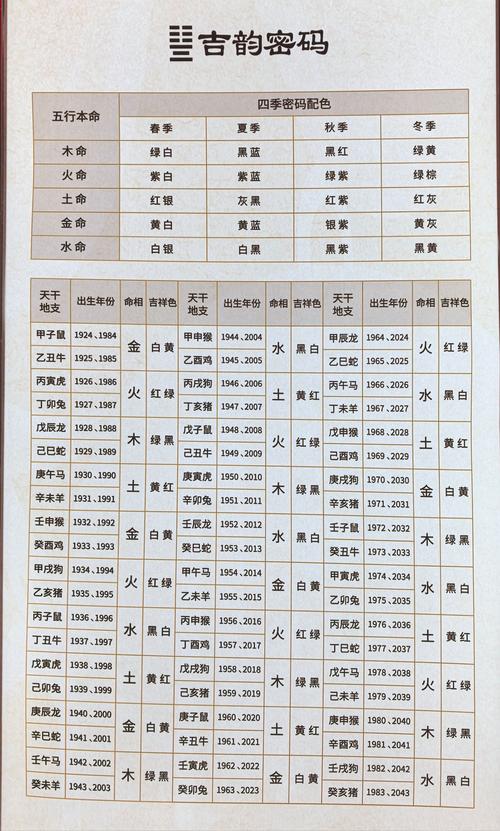 吉韵密码
五行本命 四季密码配色
春季 夏季 秋季 冬季
木命 绿白 黑蓝 黑红 绿黄
火命 紫白 紫蓝 绿紫 绿棕
土命 红银 灰黑 红紫 红灰
金命 黄白 黄蓝 银紫 黄灰
水命 白银 白黑 黑紫 黑黄
天干地支 出生年份 命相 吉祥色 天干地支 出生年份 命相 吉祥色 天干地支 出生年份 命相 吉祥色
甲子鼠 1924、1984 金 白黄 甲申猴 1944、2004 水 黑白 甲辰龙 1964、2024 火 红绿
乙丑牛 1925、1985 乙酉鸡 1945、2005 乙巳蛇 1965、2025
丙寅虎 1926、1986 火 红绿 丙戌狗 1946、2006 土 黄红 丙午马 1966、2026 水 黑白
丁卯兔 1927、1987 丁亥猪 1947、2007 丁未羊 1967、2027
戊辰龙 1928、1988 木 绿黑 戊子鼠 1948、2008 火 红绿 戊申猴 1968、2028 土 黄红
己巳蛇 1929、1989 己丑牛 1949、2009 己酉鸡 1969、2029
庚午马 1930、1990 土 黄红 庚寅虎 1950、2010 木 绿黑 庚戌狗 1970、2030 金 白黄
辛未羊 1931、1991 辛卯兔 1951、2011 辛亥猪 1971、2031
壬申猴 1932、1992 金 白黄 壬辰龙 1952、2012 水 黑白 壬子鼠 1972、2032 木 绿黑
癸酉鸡 1933、1993 癸巳蛇 1953、2013 癸丑牛 1973、2033
甲戌狗 1934、1994 火 红绿 甲午马 1954、2014 金 白黄 甲寅虎 1974、2034 水 黑白
乙亥猪 1935、1995 乙未羊 1955、2015 乙卯兔 1975、2035
丙子鼠 1936、1996 水 黑白 丙申猴 1956、2016 火 红绿 丙辰龙 1976、2036 土 黄红
丁丑牛 1937、1997 丁酉鸡 1957、2017 丁巳蛇 1977、2037
戊寅虎 1938、1998 土 黄红 戊戌狗 1958、2018 木 绿黑 戊午马 1978、2038 火 红绿
己卯兔 1939、1999 己亥猪 1959、2019 己未羊 1979、2039
庚辰龙 1940、2000 金 白黄 庚子鼠 1960、2020 土 黄红 庚申猴 1980、2040 木 绿黑
辛巳蛇 1941、2001 辛丑牛 1961、2021 辛酉鸡 1981、2041
壬午马 1942、2002 木 绿黑 壬寅虎 1962、2022 金 白黄 壬戌狗 1982、2042 水 黑白
癸未羊 1943、2003 癸卯兔 1963、2023 癸亥猪 1983、2043